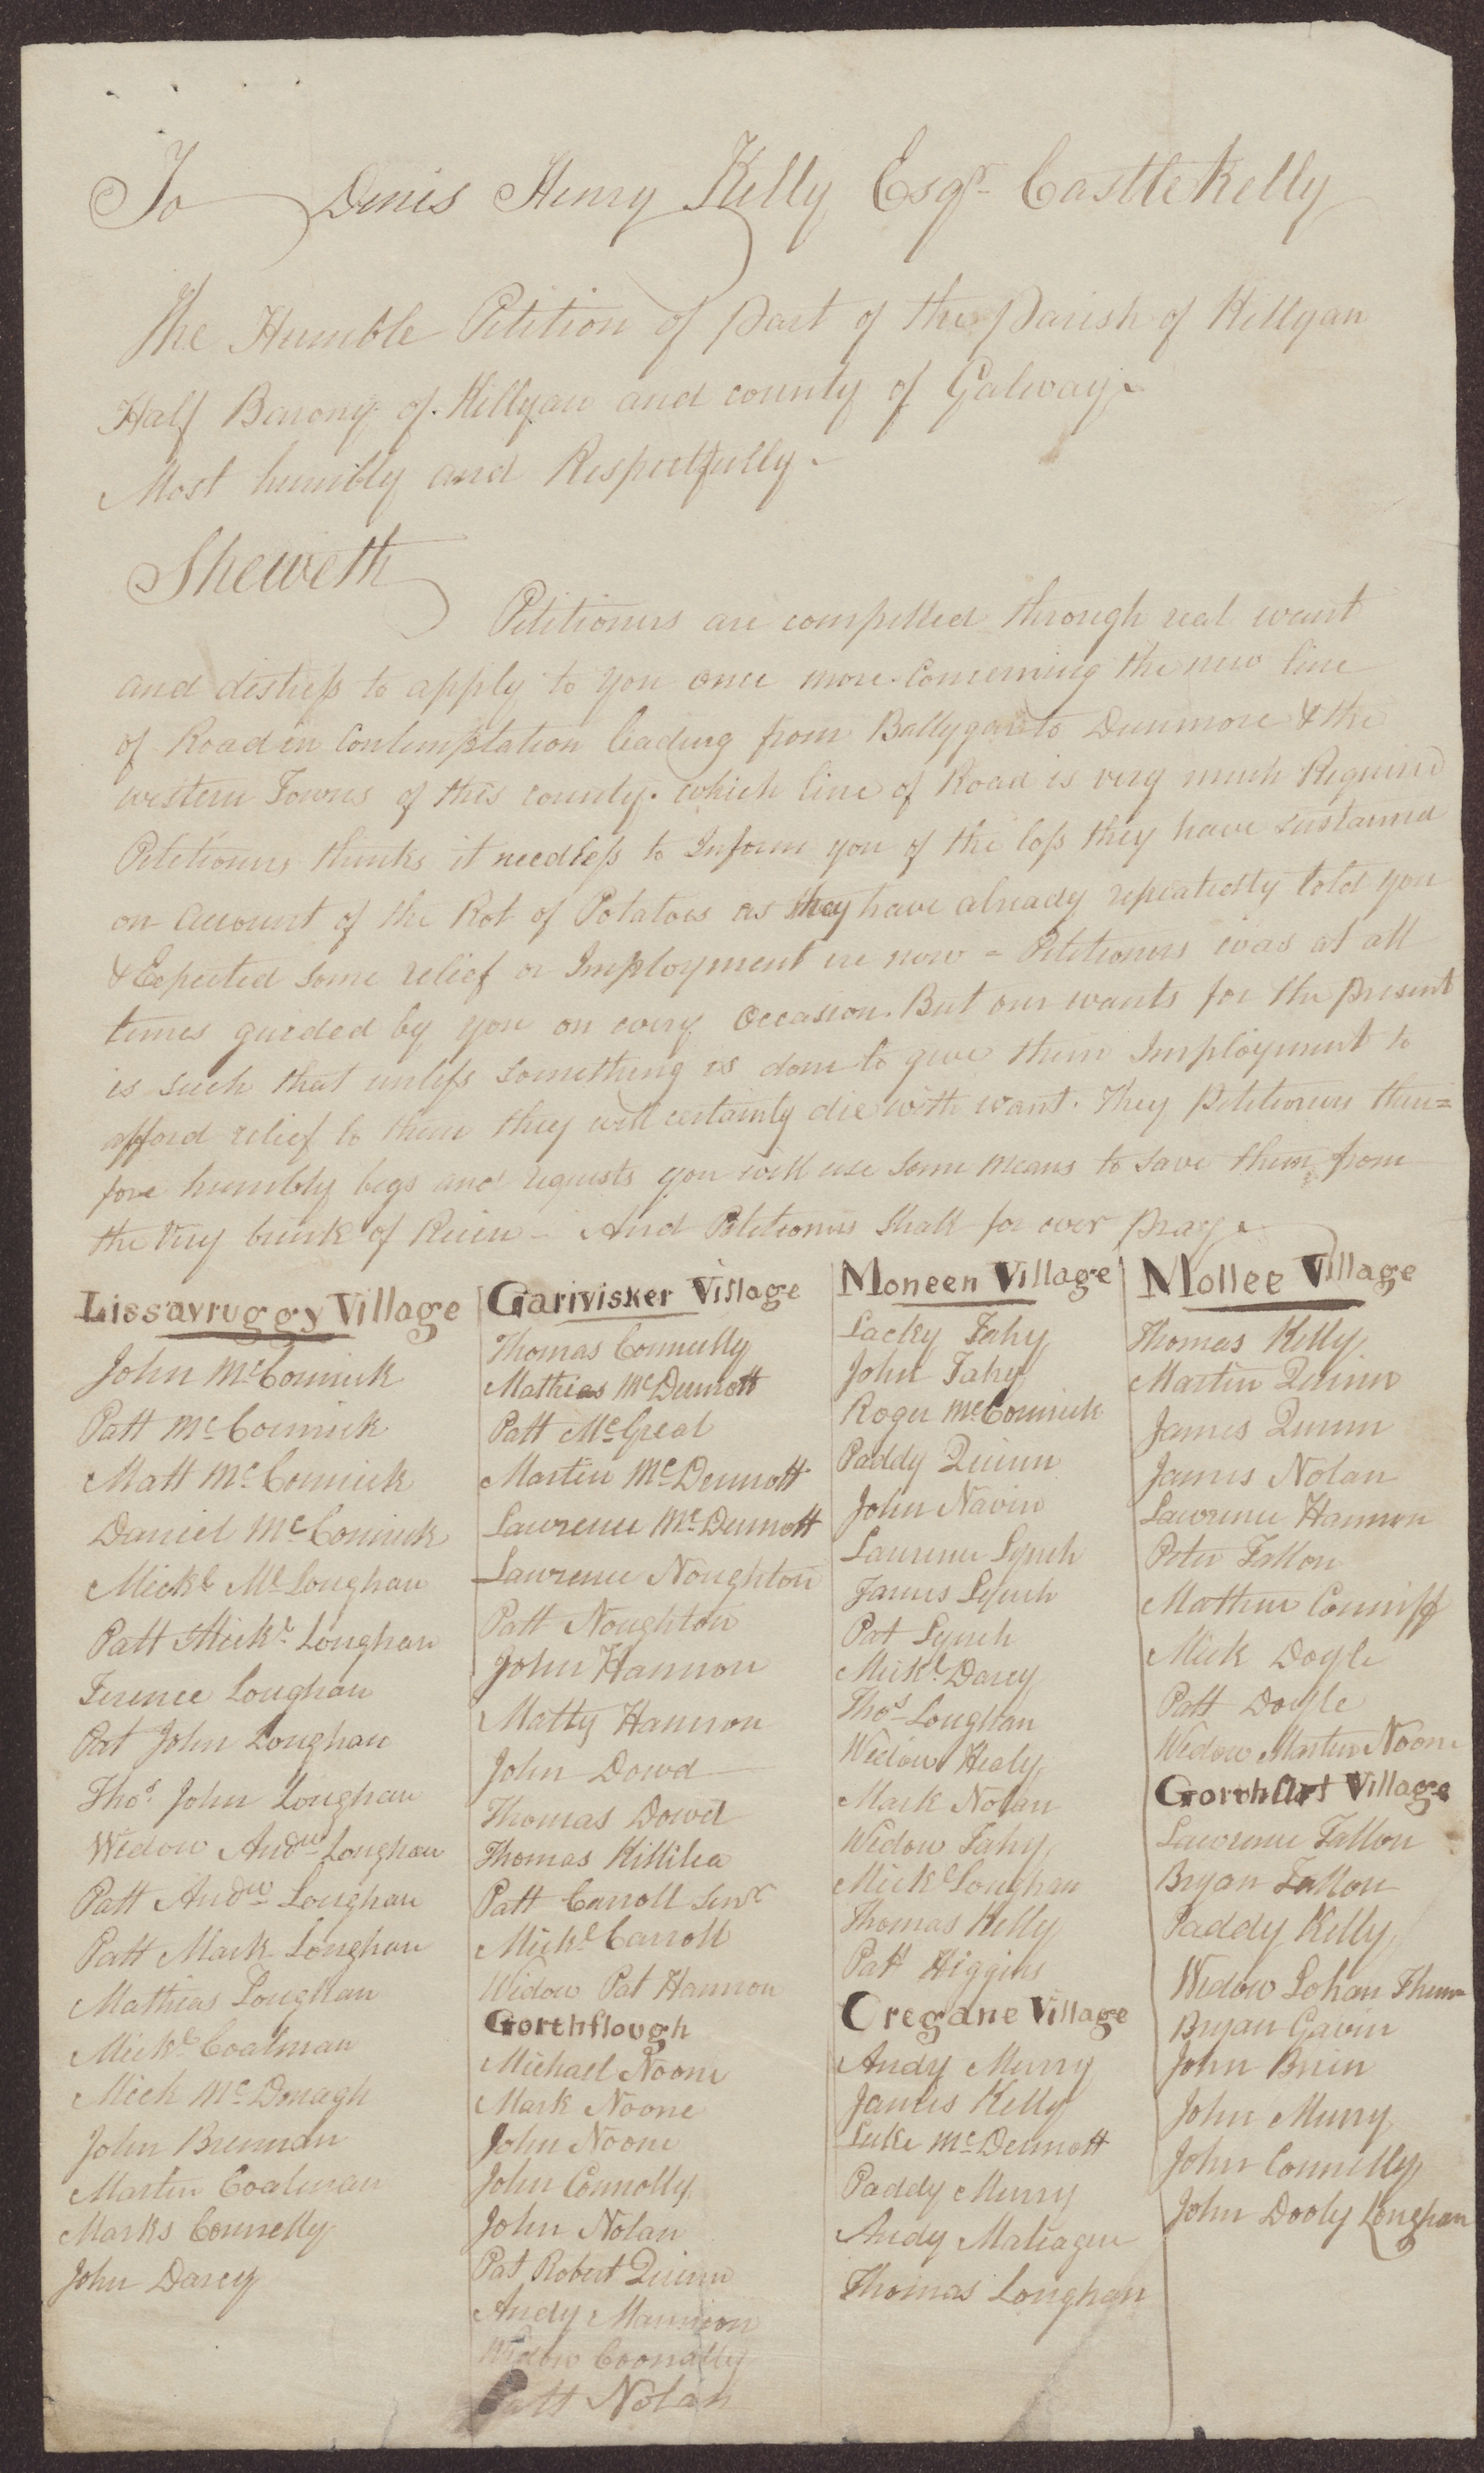 To Denis Henry Kelly Esqr Castlekelly
The Humble Petition of part of the Parish of Killyan
Half Barony of Killyan and county of Galway.
Most humbly and Respectfully.
Sheweth
Petitioners are compelled through real want
and distress to apply to you once more. Concerning the new line
of Road in Contemplation leading from Ballygar to Dunmore & the
western Towns of this county. which line of Road is very much Required
Petitioners thinks it needless to Inform you of the loss they have sustained
on account of the Rot of Potatoes as they have already repeatedly told you
& Expected some relief or Imployment ere now = Petitioners was at all
times guided by you on every Occasion. But our wants for the present
is such that unless something is done to give them Imployment to
afford relief to them they will certainly die with want. They Petitioners there=
fore humbly begs and requests you will use some means to save them from
the very brink of Ruin - And Petitioners shall for ever pray.
Lissavruggy Village
John McCormick
Patt McCormick
Matt McCormick
Daniel McCormick
Mickl McLoughan
Patt Mickl Loughan
Terence Loughan
Pat John Loughan
Thos John Loughan
Widow Andw Loughan
Patt Andw Loughan
Patt Mark Loughan
Mathias Loughan
Mickl Coalman
Mich McDonagh
John Brennan
Martin Coalman
Marks Connelly
John Darcy
Garivisker Village
Thomas Connelly
Mathias McDermott
Patt McGreal
Martin McDermott
Lawrence McDermott
Lawrence Noughton
Patt Noughton
John Hannon
Matty Hannon
John Dowd
Thomas Dowd
Thomas Killilea
Patt Carroll Senr
Mickl Carroll
Widow Pat Hannon
Gorthflough
Michael Noone
Mark Noone
John Noone
John Connolly
John Nolan
Pat Robert Quinn
Andy Mannion
Widow Coonally
Patt Nolan
Moneen Village
Lacky Fahy
John Fahy
Roger McCormick
Paddy Quinn
John Navin
Laurence Lynch
James Lynch
Pat Lynch
Mickl Darcy
Thos Loughan
Widow Healy
Mark Nolan
Widow Fahy
Mickl Loughan
Thomas Kelly
Patt Higgins
Cregane Village
Andy Murry
James Kelly
Luke McDermott
Paddy Murry
Andy
Thomas Loughan
Mollee Village
Thomas Kelly
Martin Quinn
James Quinn
James Nolan
Lawrence Hannon
Peter Fallon
Mathew Conniff
Mick Doyle
Patt Doyle
Widow Martin Noone
Village
Lawrence Fallon
Bryan Fallon
Paddy Kelly
Widow Lohan
Bryan Gavin
John Brien
John Murry
John Connelly
John Dooly Loughan